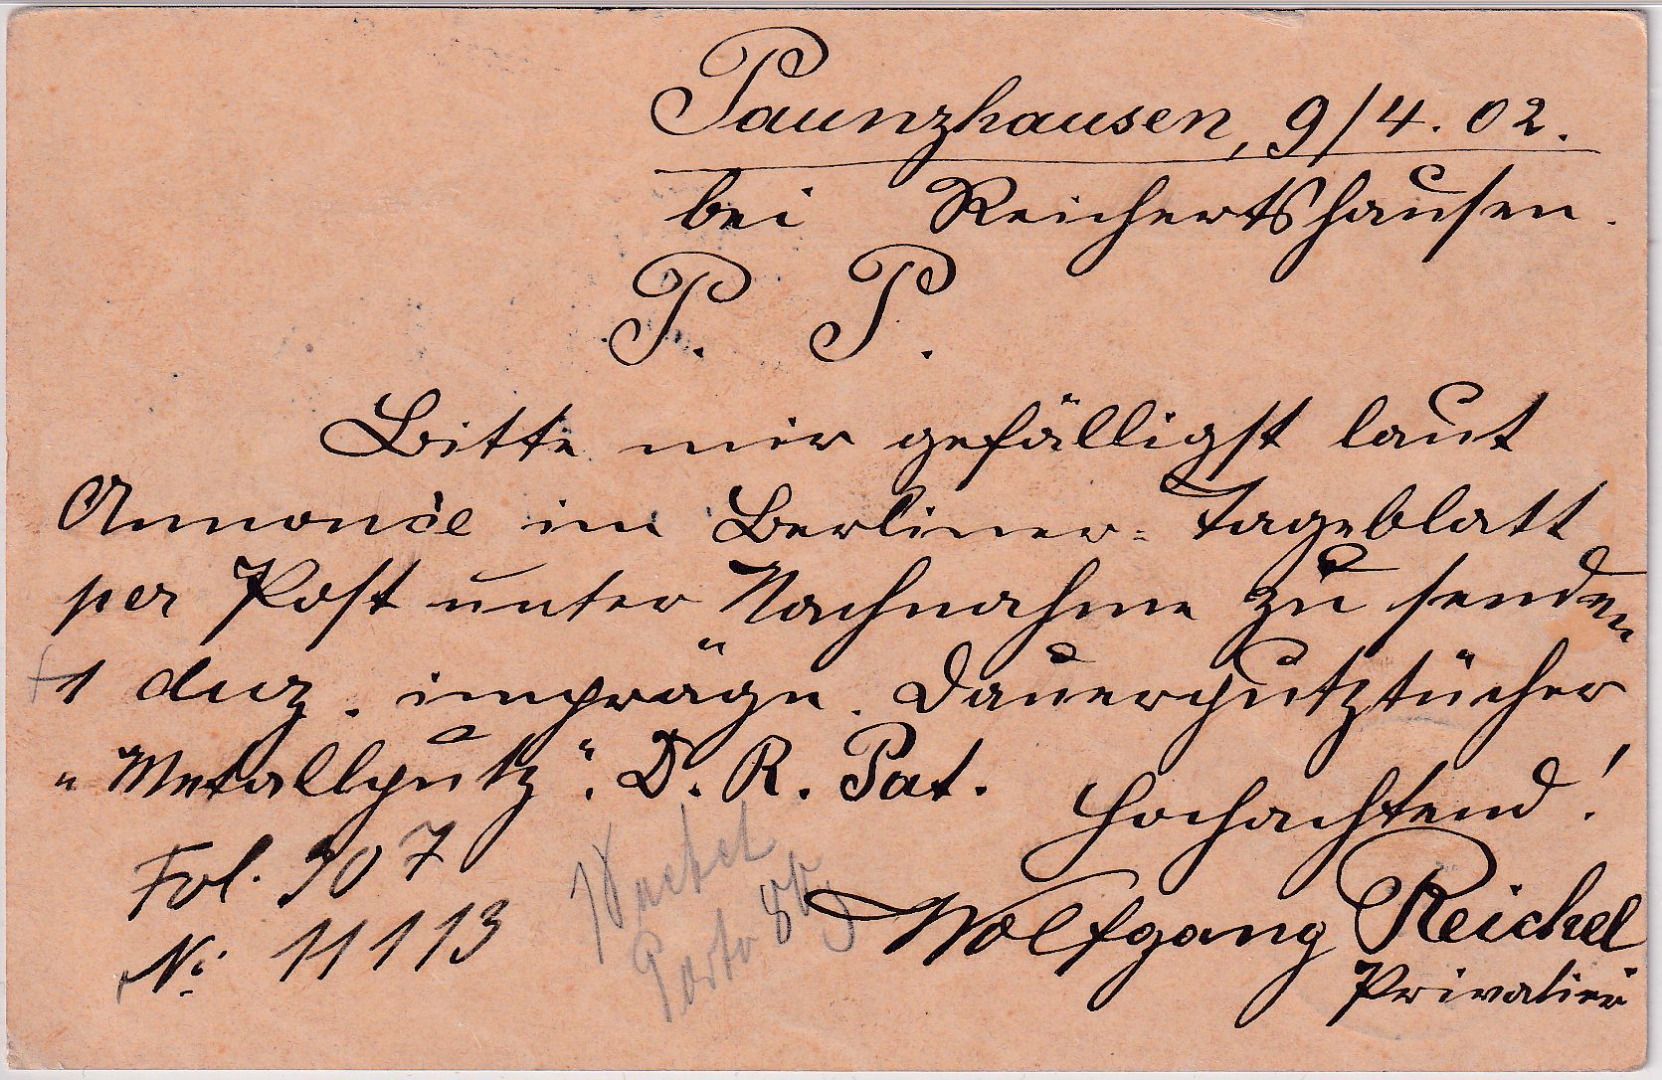 Paunzhausen, 9/4. 02.
bei Reichertshausen.
P. P.
Bitte mir gefälligst laut
Annonce im Berliner-Tageblatt
per Post unter Nachnahme zu senden
1 duz. imprägn. Dauerputztücher
"Metallputz". D. R. Pat.
Hochachtend!
Wolfgang Reichel
Privatier
Fol. 907
No 11113
Porto